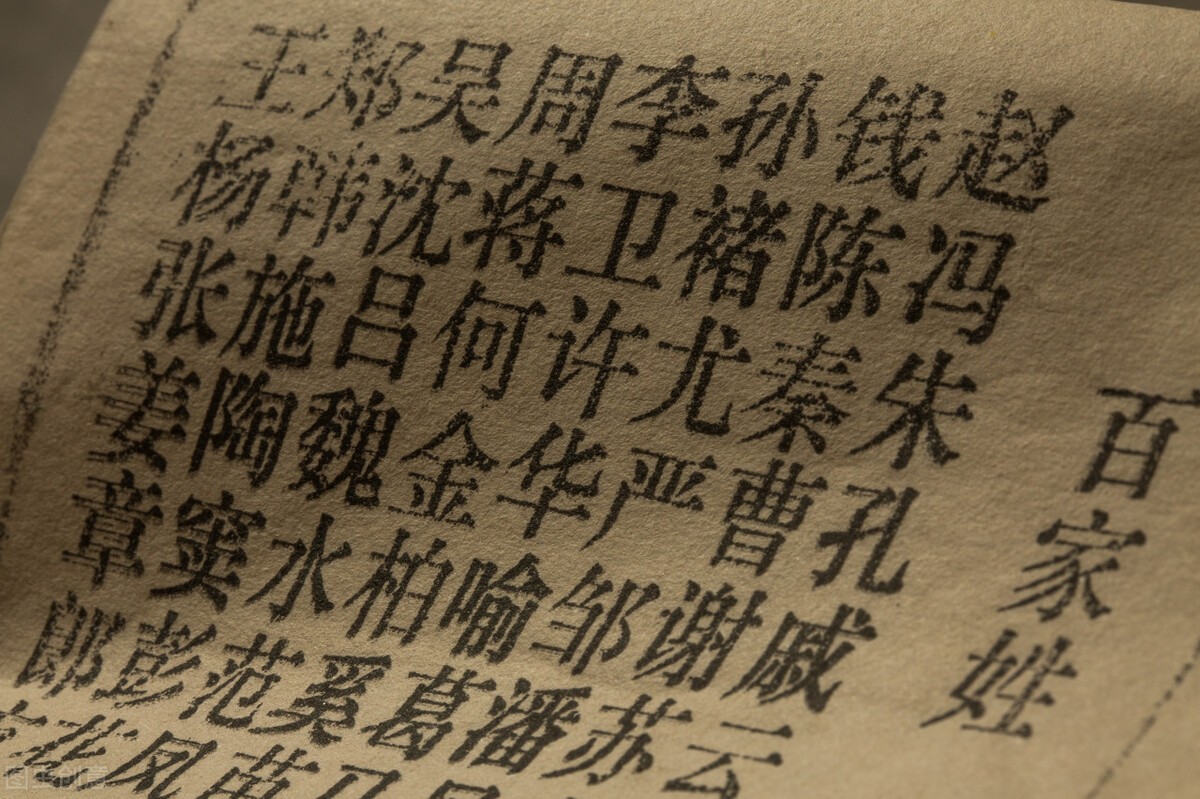 百家姓
赵钱孙李周吴郑王
冯陈褚卫蒋沈韩杨
朱秦尤许何吕施张
孔曹严华金魏陶姜
戚谢邹喻柏水窦章
云苏潘葛奚范彭郎
苗凤花
图虫创意